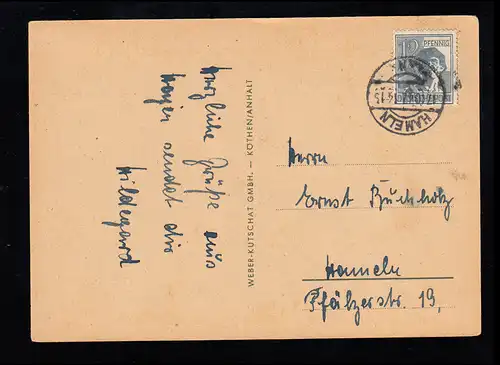 Herzliche Grüße aus
sendet Dir
Hildegard
WEBER-KUTSCHAT GMBH. — KÖTHEN/ANHALT
12 PFENNIG
HAMELN
Herrn
Ernst Buchholz
Hameln
Pfälzerstr. 19,